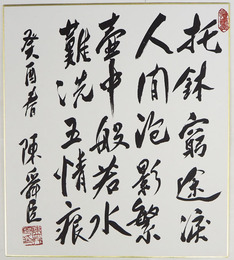 托鉢窮途淚
人间泡影繁
壺中般若水
難洗五情痕
癸酉春 陳舜臣